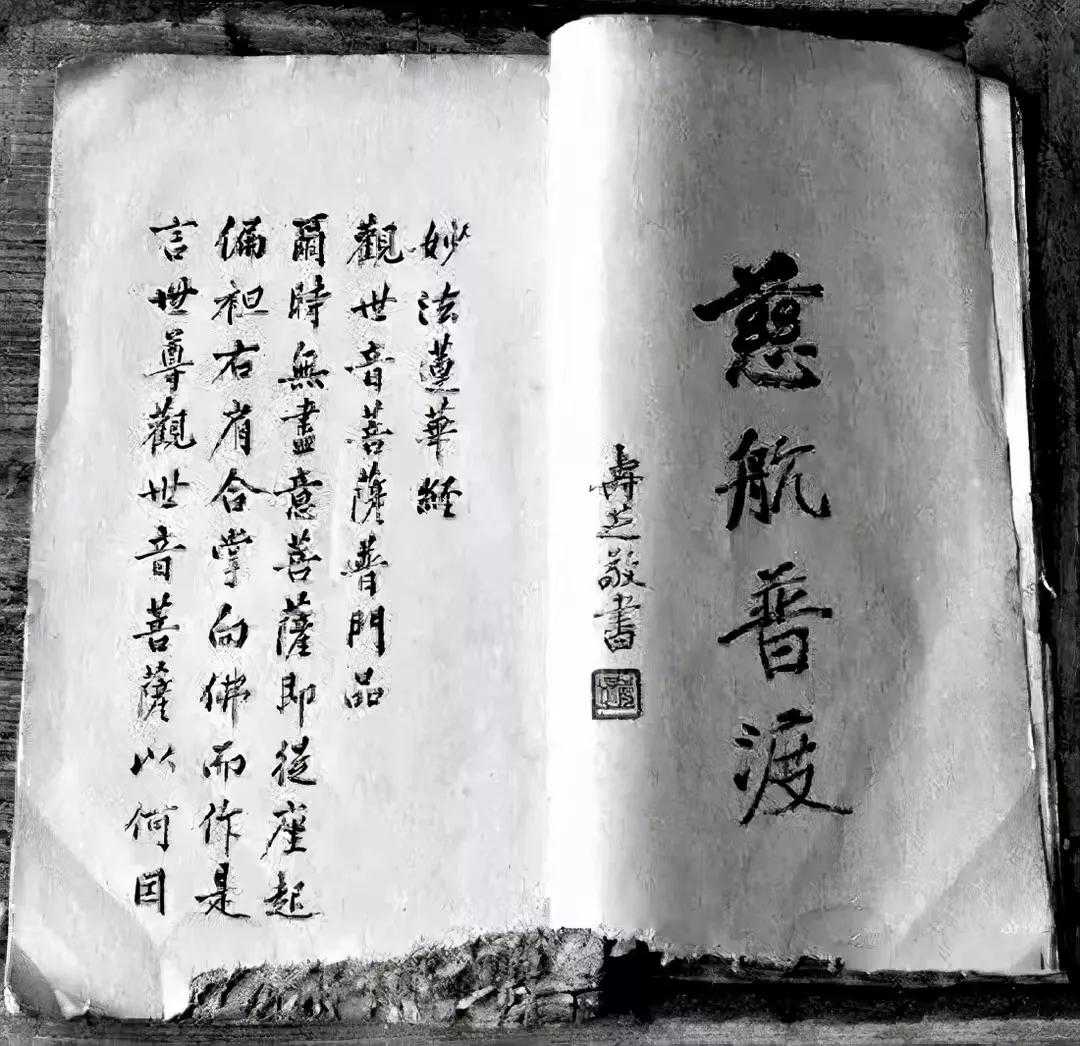 慈航普渡
壽芝敬書
妙法蓮華經
觀世音菩薩普門品
爾時無盡意菩薩即從座起
偏袒右肩合掌向佛而作是
言世尊觀世音菩薩以何因